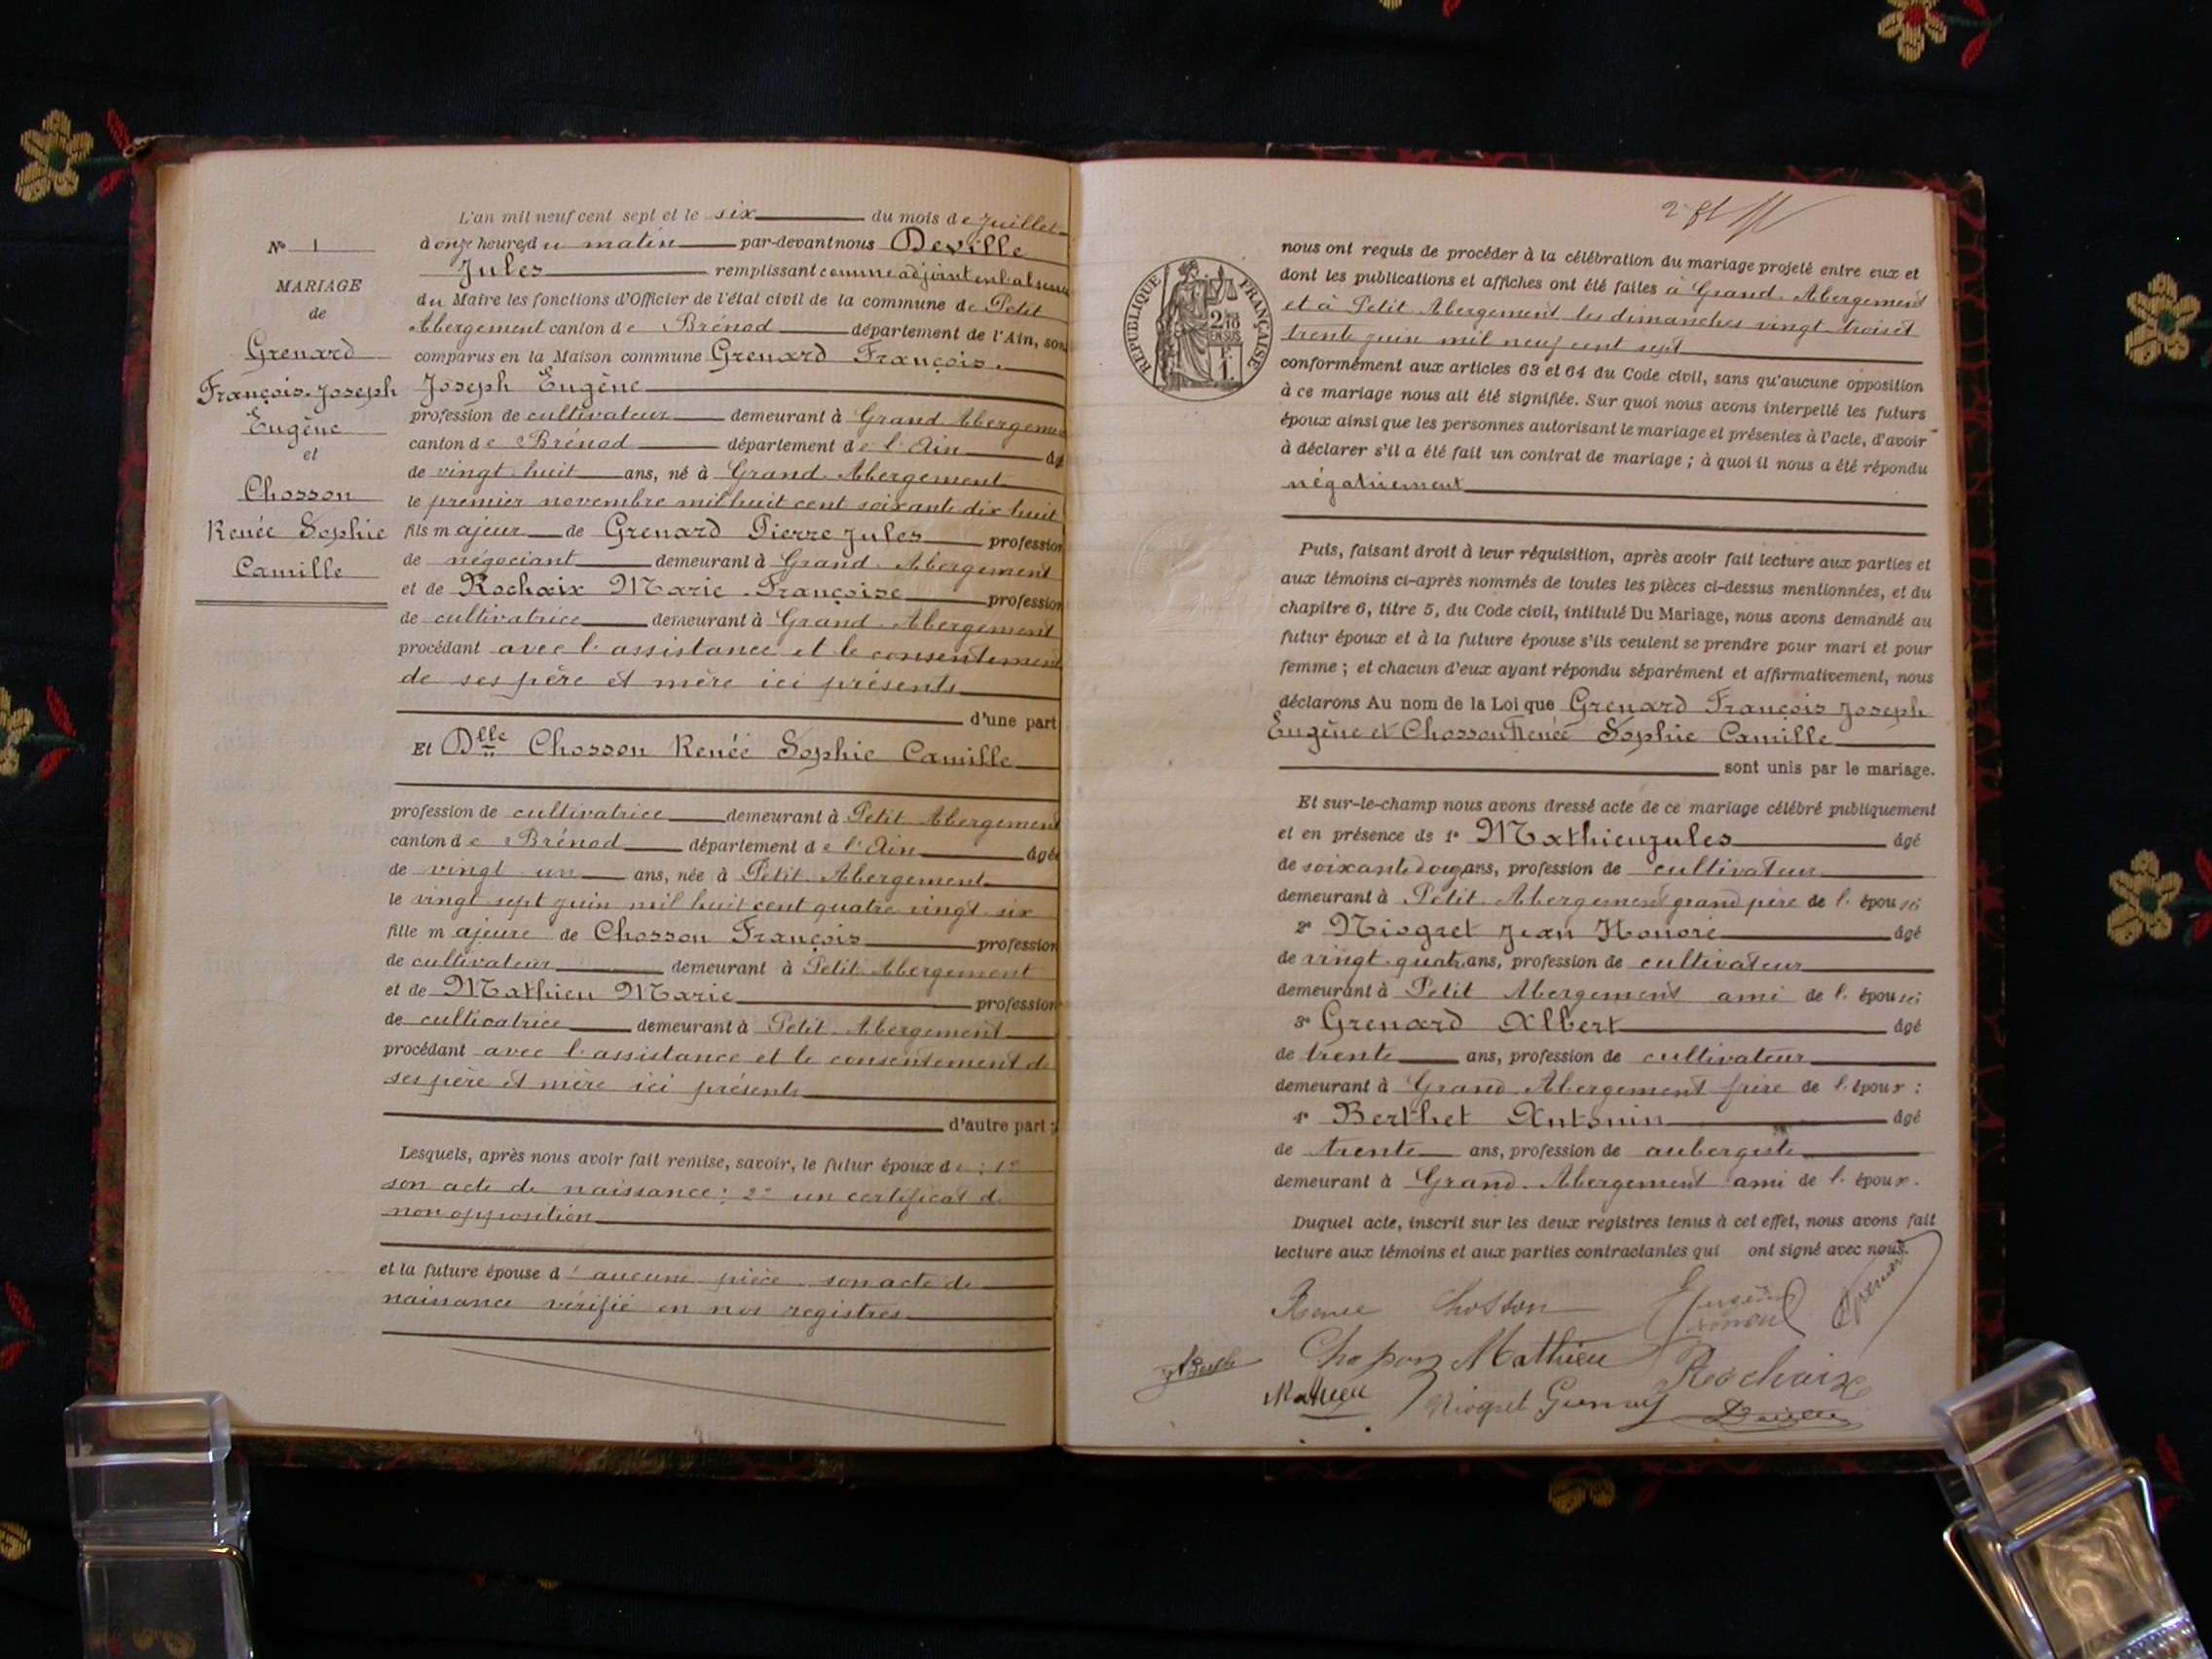 L'an mil neuf cent sept et le six du mois de Juillet
à onze heures du matin par-devant nous Deville
Jules remplissant comme adjoint en l'absence
du Maire les fonctions d'Officier de l'état civil de la commune de Petit
Abergement canton de Brénod département de l'Ain, son
comparus en la Maison commune Grenard François.
Joseph Eugène
profession de cultivateur demeurant à Grand Abergement
canton de Brénod département de l'Ain âgé
de vingt-huit ans, né à Grand Abergement
le premier novembre mil huit cent soixante dix huit
fils majeur de Grenard Pierre Jules profession
de négociant demeurant à Grand Abergement
et de Rochaix Marie Françoise profession
de cultivatrice demeurant à Grand Abergement
procédant avec l'assistance et le consentement
de ses père et mère ici présents
d'une part
Et Dlle Chosson Renée Sophie Camille
profession de cultivatrice demeurant à Petit Abergement
canton de Brénod département de l'Ain âgée
de vingt un ans, née à Petit Abergement
le vingt sept juin mil huit cent quatre vingt six
fille majeure de Chosson François profession
de cultivateur demeurant à Petit Abergement
et de Mathieu Marie profession
de cultivatrice demeurant à Petit Abergement
procédant avec l'assistance et le consentement de
ses père et mère ici présents
d'autre part ;
Lesquels, après nous avoir fait remise, savoir, le futur époux de : 1°
son acte de naissance : 2° un certificat de
non opposition
et la future épouse d' aucune pièce son acte de
naissance vérifié en nos registres
N° 1
MARIAGE
de
Grenard
François Joseph
Eugène
et
Chosson
Renée Sophie
Camille
RÉPUBLIQUE FRANÇAISE
2/10
EN SUS
1 F.
nous ont requis de procéder à la célébration du mariage projeté entre eux et
dont les publications et affiches ont été faites à Grand Abergement
et à Petit Abergement les dimanches vingt trois et
trente juin mil neuf cent sept
conformément aux articles 63 et 64 du Code civil, sans qu'aucune opposition
à ce mariage nous ait été signifiée. Sur quoi nous avons interpellé les futurs
époux ainsi que les personnes autorisant le mariage et présentes à l'acte, d'avoir
à déclarer s'il a été fait un contrat de mariage ; à quoi il nous a été répondu
négativement
Puis, faisant droit à leur réquisition, après avoir fait lecture aux parties et
aux témoins ci-après nommés de toutes les pièces ci-dessus mentionnées, et du
chapitre 6, titre 5, du Code civil, intitulé Du Mariage, nous avons demandé au
futur époux et à la future épouse s'ils veulent se prendre pour mari et pour
femme ; et chacun d'eux ayant répondu séparément et affirmativement, nous
déclarons Au nom de la Loi que Grenard François Joseph
Eugène et Chosson Renée Sophie Camille
sont unis par le mariage.
Et sur-le-champ nous avons dressé acte de ce mariage célébré publiquement
et en présence de 1° Mathieu Jules âgé
de soixante douze ans, profession de cultivateur
demeurant à Petit Abergement grand père de l'épouse
2° Niogret Jean Honoré âgé
de vingt-quatre ans, profession de cultivateur
demeurant à Petit Abergement ami de l'épouse
3° Grenard Albert âgé
de trente ans, profession de cultivateur
demeurant à Grand Abergement frère de l'époux :
4° Berthet Antonin âgé
de trente ans, profession de aubergiste
demeurant à Grand Abergement ami de l'époux.
Duquel acte, inscrit sur les deux registres tenus à cet effet, nous avons fait
lecture aux témoins et aux parties contractantes qui ont signé avec nous.
Renée Chosson Eugène Grenard
Mathieu Rochaix
Mathieu Niogret Deville